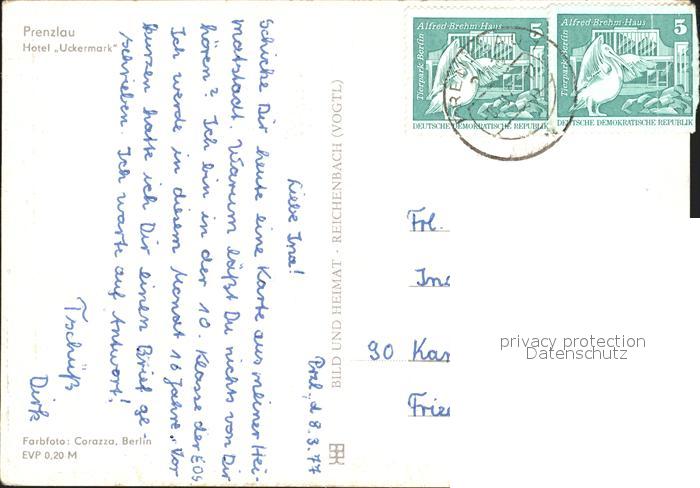 Prenzlau
Hotel „Uckermark"
Przl., d. 8.3.77
Liebe Ina!
Schicke Dir heute eine Karte aus meiner Hei-
matstadt. Warum läßt Du nichts von Dir
hören? Ich bin in der 10. Klasse der EOS
Ich werde in diesem Monat 16 Jahre. Vor
kurzen hatte ich Dir einen Brief ge-
schrieben. Ich warte auf Antwort!
Tschüß
Dirk
Farbfoto: Corazza, Berlin
EVP 0,20 M
BILD UND HEIMAT · REICHENBACH (VOGTL)
Alfred-Brehm-Haus 5
Tierpark Berlin
DEUTSCHE DEMOKRATISCHE REPUBLIK
Alfred-Brehm-Haus 5
Tierpark Berlin
DEUTSCHE DEMOKRATISCHE REPUBLIK
Frl.
90 Kar
Frie
privacy protection
Datenschutz